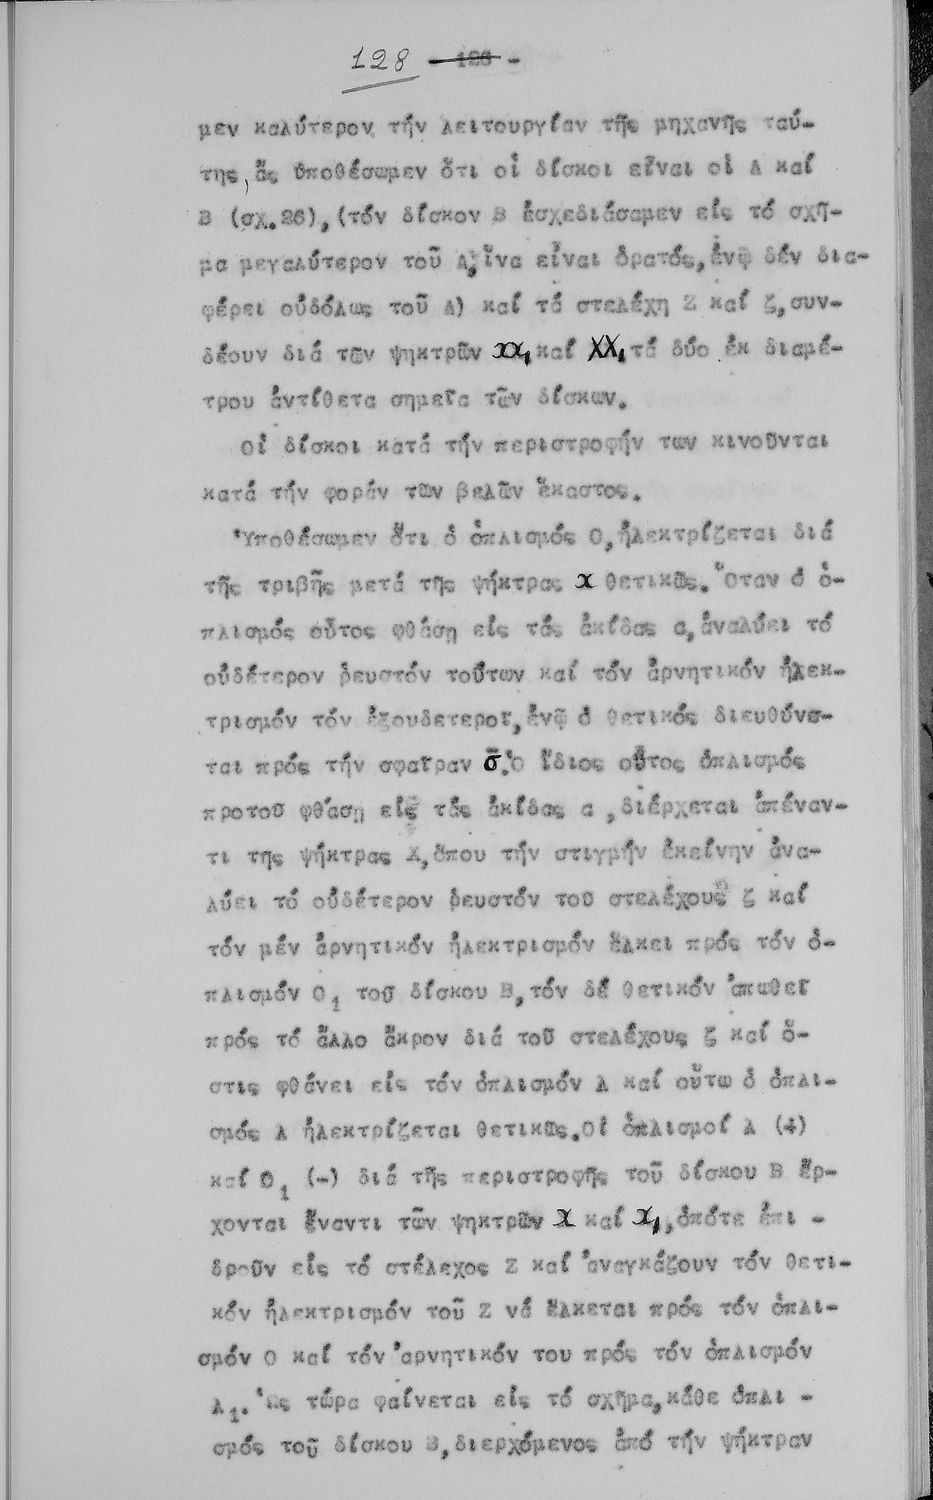 128 - 126 -
μεν καλύτερον τήν λειτουργίαν τῆς μηχανῆς ταύ-
της, ἄς ὑποθέσωμεν ὅτι οἱ δίσκοι εἶναι οἱ Α καί
Β (σχ.26), (τόν δίσκον Β ἐσχεδιάσαμεν εἰς τό σχῆ-
μα μεγαλύτερον τοῦ Α, ἵνα εἶναι ὁρατός, ἐνῷ δέν δια-
φέρει οὐδόλως τοῦ Α) καί τά στελέχη Ζ καί ζ, συν-
δέουν διά τῶν ψηκτρῶν χχ₁ καί ΧΧ₁ τά δύο ἐκ διαμέ-
τρου ἀντίθετα σημεῖα τῶν δίσκων.
Οἱ δίσκοι κατά τήν περιστροφήν των κινοῦνται
κατά τήν φοράν τῶν βελῶν ἕκαστος.
Ὑποθέσωμεν ὅτι ὁ ὁπλισμός Ο, ἠλεκτρίζεται διά
τῆς τριβῆς μετά τῆς ψήκτρας χ θετικῶς. Ὅταν ὁ ὁ-
πλισμός οὗτος φθάσῃ εἰς τάς ἀκίδας α, ἀναλύει τό
οὐδέτερον ῥευστόν τούτων καί τόν ἀρνητικόν ἠλεκ-
τρισμόν τόν ἐξουδετεροῖ, ἐνῷ ὁ θετικός διευθύνε-
ται πρός τήν σφαῖραν σ̄. Ὁ ἴδιος οὗτος ὁπλισμός
προτοῦ φθάσῃ εἰς τάς ἀκίδας α, διέρχεται ἀπέναν-
τι της ψήκτρας Χ, ὅπου τήν στιγμήν ἐκείνην ἀνα-
λύει τό οὐδέτερον ῥευστόν τοῦ στελέχους ζ καί
τόν μέν ἀρνητικόν ἠλεκτρισμόν ἕλκει πρός τόν ὁ-
πλισμόν Ο₁ τοῦ δίσκου Β, τόν δέ θετικόν ἀπωθεῖ
πρός τό ἄλλο ἄκρον διά τοῦ στελέχους ζ καί ὅ-
στις φθάνει εἰς τόν ὁπλισμόν λ καί οὕτω ὁ ὁπλι-
σμός λ ἠλεκτρίζεται θετικῶς. Οἱ ὁπλισμοί λ (+)
καί Ο₁ (-) διά τῆς περιστροφῆς τοῦ δίσκου Β ἔρ-
χονται ἔναντι τῶν ψηκτρῶν χ καί χ₁, ὁπότε ἐπι -
δροῦν εἰς τό στέλεχος Ζ καί ἀναγκάζουν τόν θετι-
κόν ἠλεκτρισμόν τοῦ Ζ νά ἕλκεται πρός τόν ὁπλι-
σμόν Ο καί τόν ἀρνητικόν του πρός τόν ὁπλισμόν
λ₁. Ὡς τώρα φαίνεται εἰς τό σχῆμα, κάθε ὁπλι -
σμός τοῦ δίσκου Β, διερχόμενος ἀπό τήν ψήκτραν